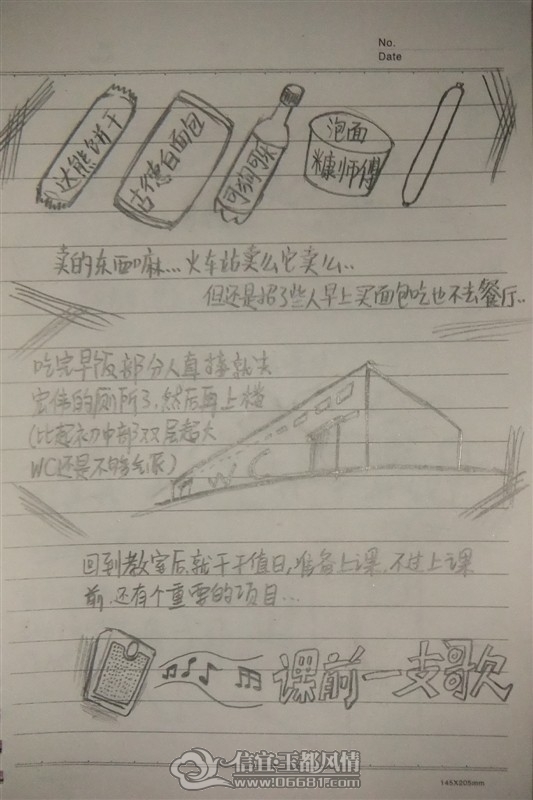 No.
Date
达能饼干
古德白面包
可狗可乐
泡面
糠师傅
卖的东西嘛...火车站卖么它卖么..
但还是招了些人早上买面包吃也不去餐厅..
吃完早饭部分人直接就去
宏伟的厕所了,然后再上楼
(比起初中部双层超大
WC还是不够气派)
回到教室后就干干值日,准备上课,不过上课
前,还有个重要的项目...
课前一支歌
信宜玉都风情
www.06681.com
145X205mm